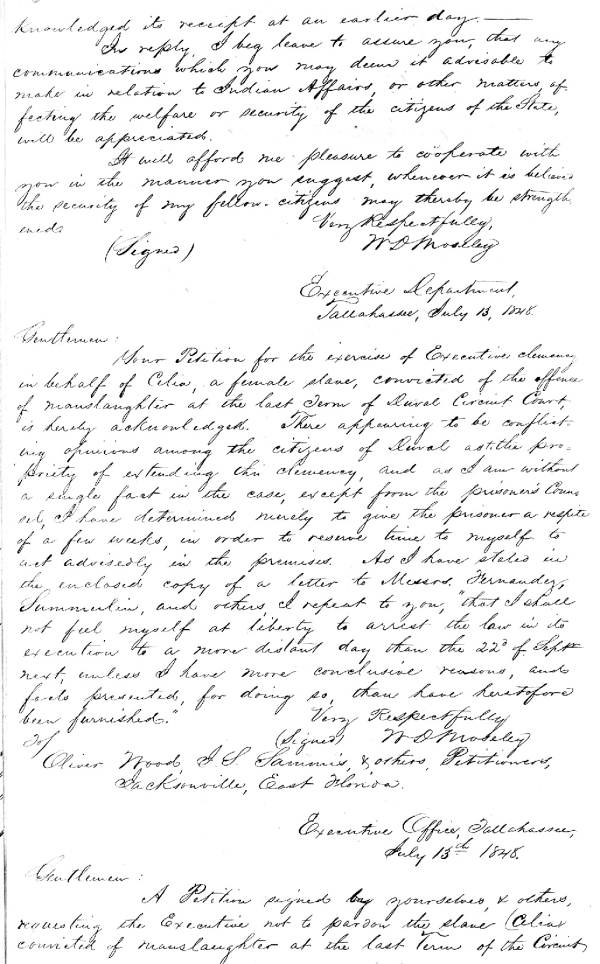 knowledged its receipt at an earlier day. —
In reply, I beg leave to assure you, that any
communications which you may deem it advisable to
make in relation to Indian Affairs, or other matters af-
fecting the welfare or security of the citizens of the State,
will be appreciated.
It will afford me pleasure to coöperate with
you in the manner you suggest, whenever it is believed
the security of my fellow-citizens may thereby be strength
ened.
Very Respectfully,
(Signed) W D Moseley
Executive Department,
Tallahassee, July 13, 1848.
Gentlemen:
Your Petition for the exercise of Executive clemency
in behalf of Celia, a female slave, convicted of the offence
of manslaughter at the last Term of Duval Circuit Court,
is hereby acknowledged. There appearing to be conflict-
ing opinions among the citizens of Duval as to the pro-
priety of extending this clemency, and as I am without
a single fact in the case, except from the prisoner's Coun-
sel, I have determined merely to give the prisoner a respite
of a few weeks, in order to reserve time to myself to
act advisedly in the premises. As I have stated in
the enclosed copy of a letter to Messrs. Hernandez,
Summerlin, and others, I repeat to you, "that I shall
not feel myself at liberty to arrest the law in its
execution to a more distant day than the 22d of Sept
next, unless I have more conclusive reasons, and
facts presented, for doing so, than have heretofore
been furnished."
Very Respectfully
(Signed) W D Moseley
To/
Oliver Wood J. S. Sammis, & others, Petitioners,
Jacksonville, East Florida.
Executive Office, Tallahassee,
July 13th 1848.
Gentlemen:
A Petition signed by yourselves, & others,
requesting the Executive not to pardon the slave (Celia)
convicted of manslaughter at the last Term of the Circuit